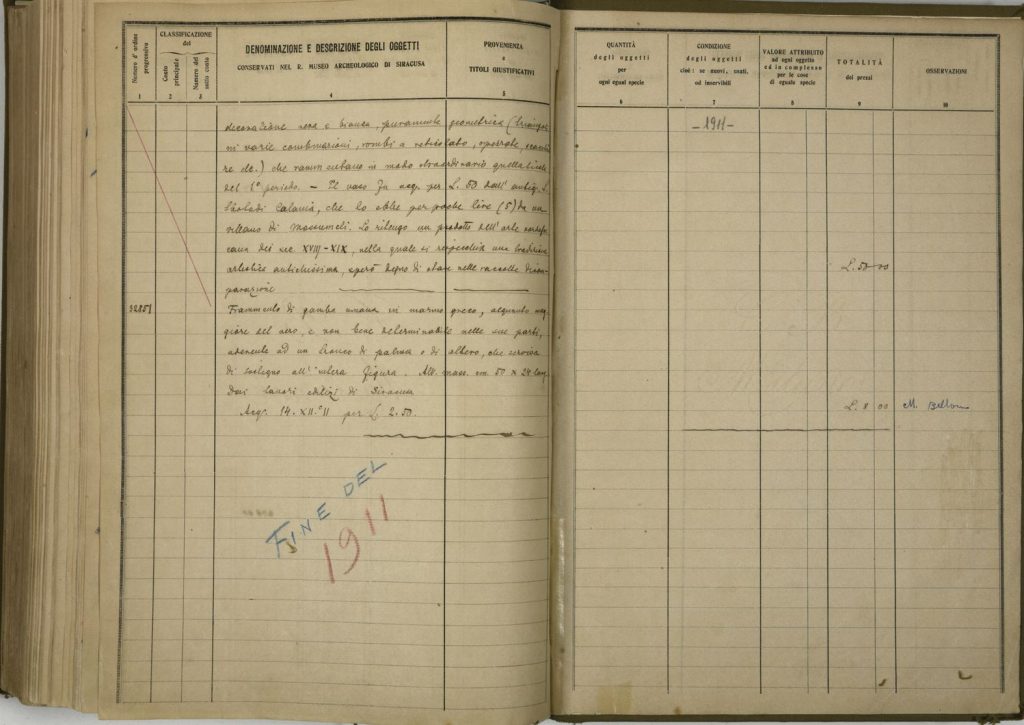 Numero d'ordine progressivo
CLASSIFICAZIONE
del
Conto principale
Numero del sotto conto
DENOMINAZIONE E DESCRIZIONE DEGLI OGGETTI
CONSERVATI NEL R. MUSEO ARCHEOLOGICO DI SIRACUSA
PROVENIENZA
e
TITOLI GIUSTIFICATIVI
1 2 3 4 5
decorazione nera e bianca, puramente geometrica (triangoli
in varie combinazioni, rombi a reticolato,
re etc.) che rammentano in modo straordinario quella
del 1° periodo. – Il vaso fu acq. per L. 50 dall'antiq.
di Catania, che lo ebbe per poche lire (5) da un
villano di Lo ritengo un prodotto dell'arte
dei sec. XVIII-XIX, nella quale si una tradizione
artistica antichissima, però degno di stare nelle raccolte di com-
parazione
32851
Frammento di gamba umana in marmo greco, alquanto mag-
giore del vero, e non bene determinabile nelle sue parti,
aderente ad un tronco di palma o di albero, che serviva
di sostegno all'intera figura. Alt. mass. cm. 50 x 24
Dai lavori edilizi di Siracusa
Acq. 14. XII.° 11 per L. 2.50.
FINE DEL
1911
QUANTITÀ
degli oggetti
per
ogni egual specie
CONDIZIONE
degli oggetti
cioè: se nuovi, usati,
od inservibili
VALORE ATTRIBUITO
ad ogni oggetto
ed in complesso
per le cose
di eguale specie
TOTALITÀ
dei prezzi
OSSERVAZIONI
6 7 8 9 10
-1911-
L. 50 00
L. 8 00 M.